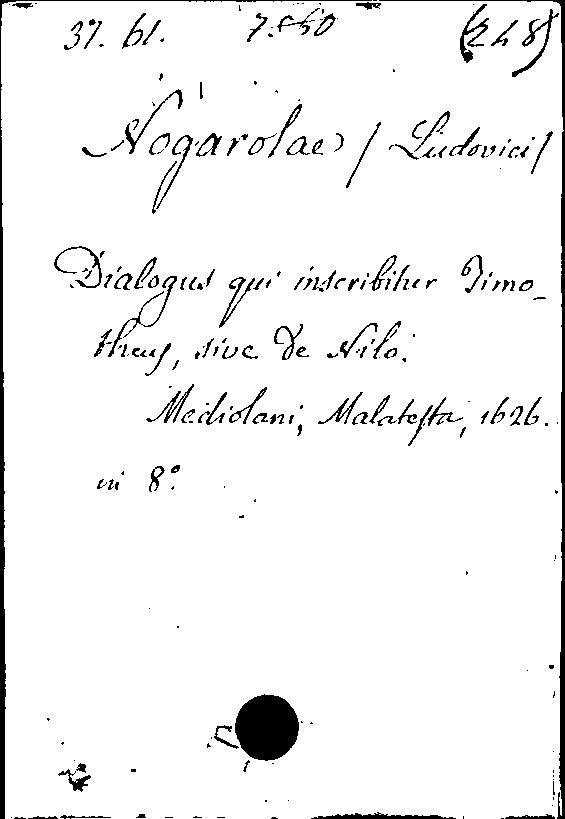 37. 61. 7.550 (248)
Nogarolae / Ludovici /
Dialogus qui inscribitur Timo-
theus, sive de Nilo.
Mediolani, Malatesta, 1626.
in 8°.